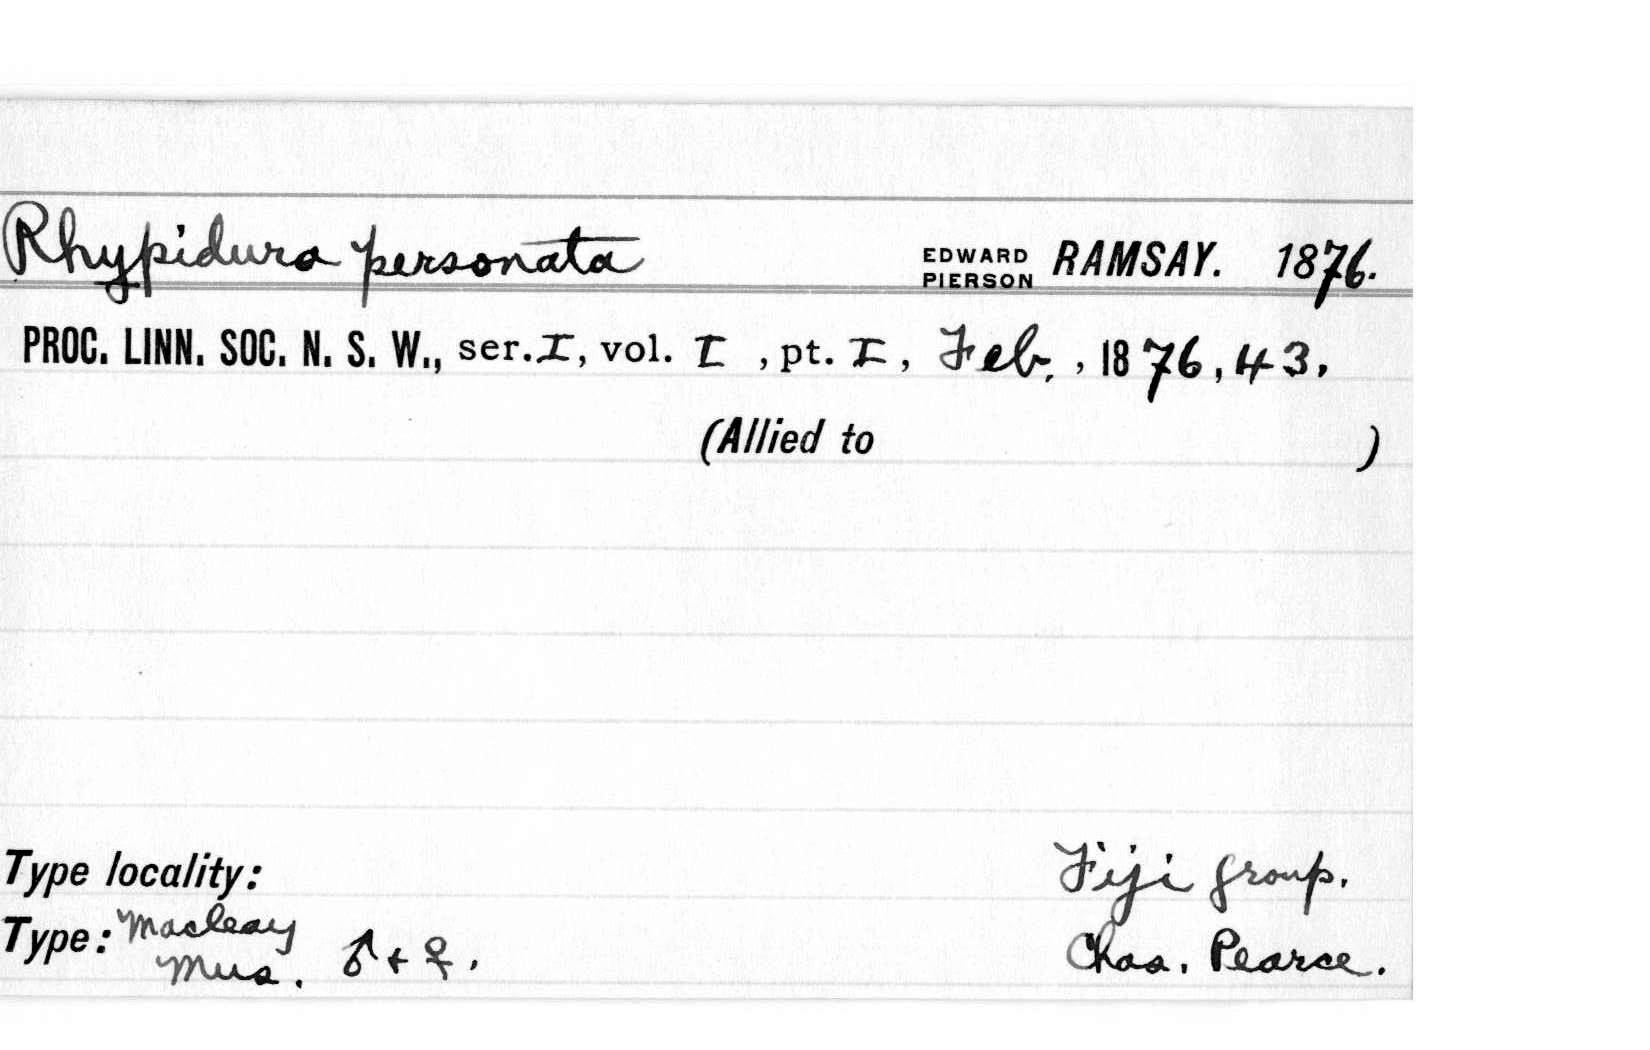 Rhypidura personata EDWARD PIERSON RAMSAY. 1876.
PROC. LINN. SOC. N. S. W., ser. I, vol. I , pt. I , Feb. , 1876, 43.
(Allied to )
Type locality: Fiji group.
Type: Macleay Mus. ♂ + ♀. Chas. Pearce.